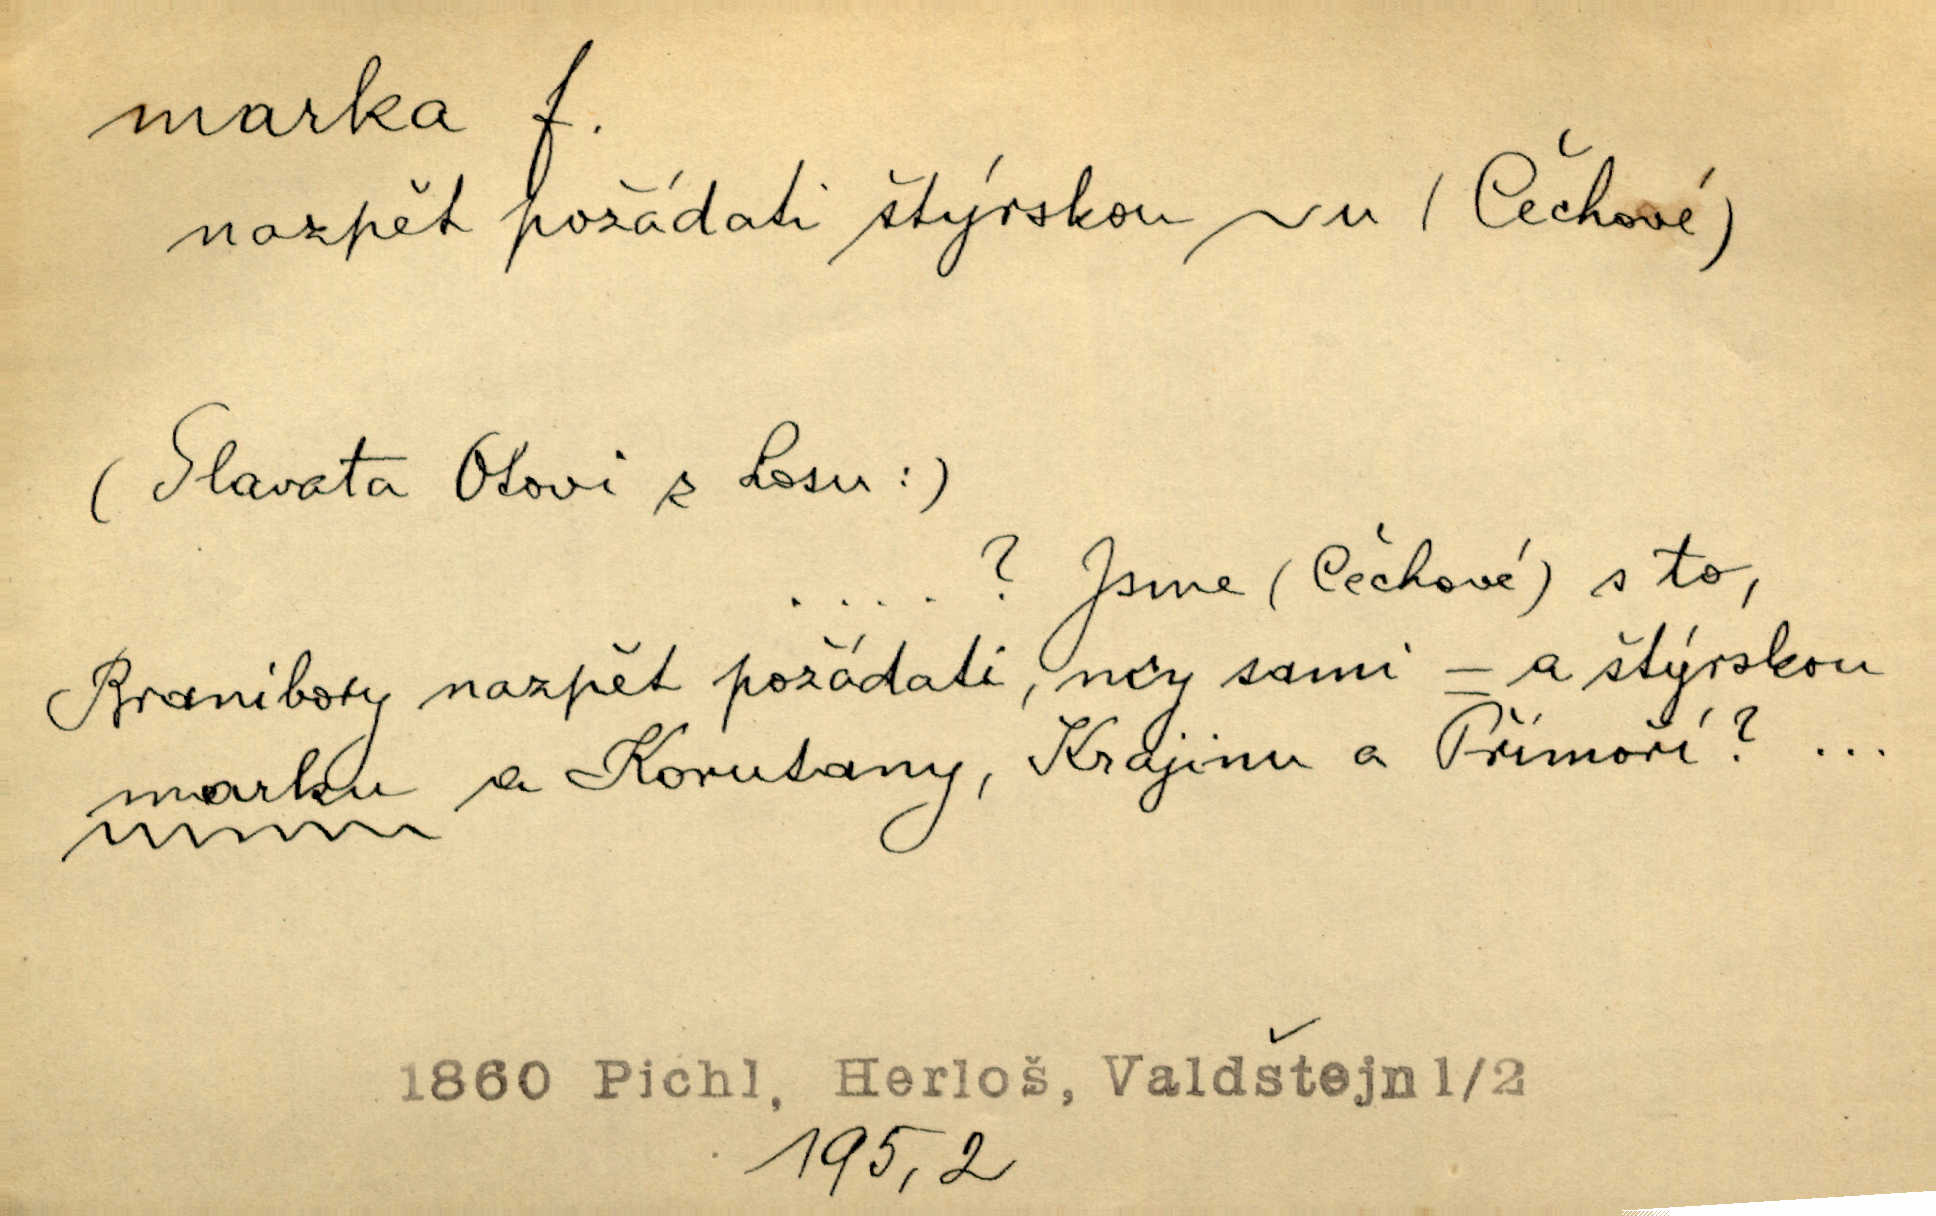 marka f.
nazpět požádati štýrskou ~u (Čechové)
(Slavata Otovi z Losu:)
. . . . ? Jsme (Čechové) s to,
Branibory nazpět požádati, my sami = a štýrskou
marku a Korutany, Krajinu a Přímoří? ...
1860 Pichl, Herloš, Valdštejn 1/2
195,2